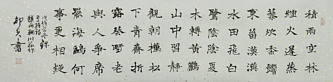 積雨空林
煙火遲蒸
藜炊黍餉
東菑漠漠
水田飛白
鷺陰陰夏
木囀黃鸝
山中習靜
觀朝槿松
下清齋折
露葵野老
與人爭席
罷海鷗何
事更相疑